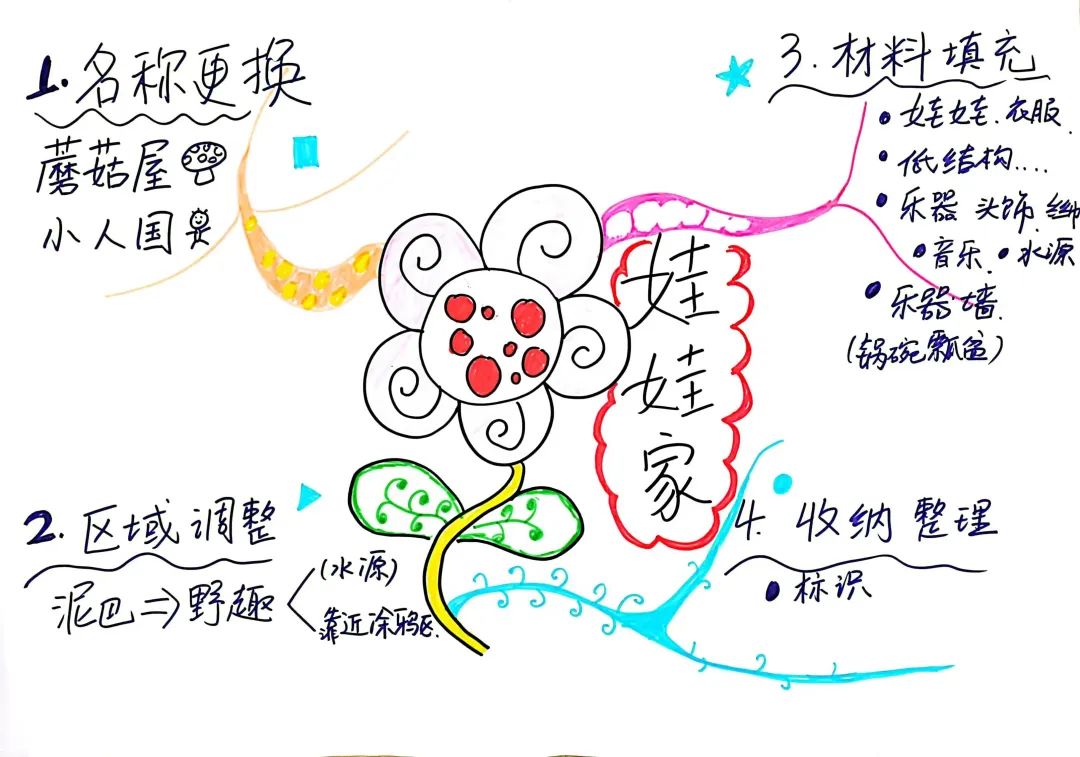 1. 名称更换
蘑菇屋
小人国
2. 区域调整
泥巴⇒野趣
(水源)
靠近涂鸦区.
娃
娃
家
3. 材料填充
• 娃娃. 衣服.
• 低结构....
• 乐器 头饰
• 音乐. • 水源
• 乐器墙.
(锅碗瓢盆)
4. 收纳整理
• 标识